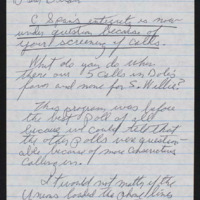 C Span's integrity is now
under question because of
your screening of calls.
What do you do when
there are 5 calls in Dole's
favor and none for S. Willie?
This program was before
the best poll of all
because we could tell that
the other polls were question-
able because of more Conservatives
calling in.
It would not matter if the
Unions loaded the